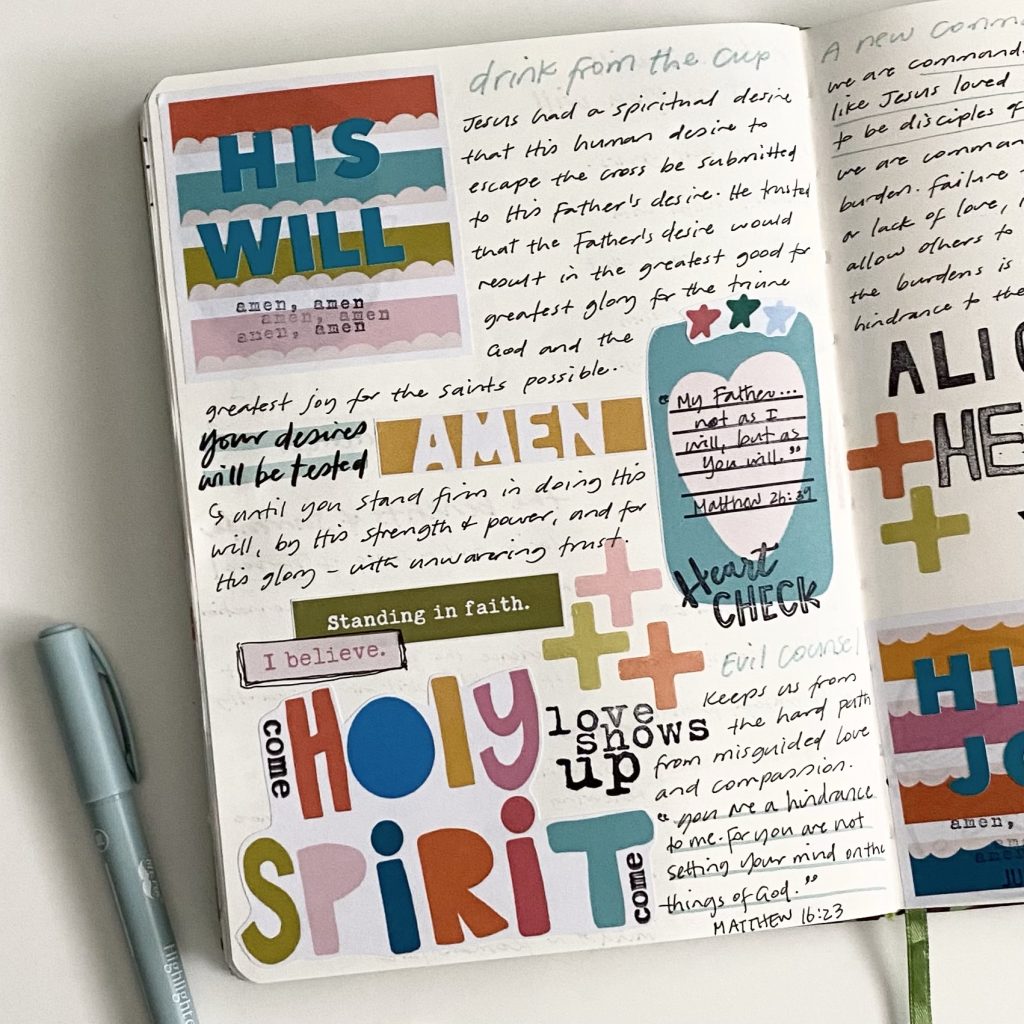 drink from the cup
HIS
WILL
amen, amen
amen, amen
amen, amen
Jesus had a spiritual desire
that His human desire to
escape the cross be submitted
to His Father's desire. He trusted
that the Father's desire would
result in the greatest good for
greatest glory for the triune
God and the
greatest joy for the saints possible.
your desires
will be tested
AMEN
↳ until you stand firm in doing His
will, by His strength & power, and for
His glory – with unwavering trust.
"My Father...
not as I
will, but as
you will."
Matthew 26:39
Heart
CHECK
Standing in faith.
I believe.
come
HOLY
SPIRIT
come
love
shows
up
Evil Counsel
keeps us from
the hard path
from misguided love
and compassion.
"you are a hindrance
to me. For you are not
setting your mind on the
things of God."
MATTHEW 16:23
A new comm
we are command
like Jesus loved
to be disciples of
we are comman
burden. Failure
or lack of love,
allow others to
the burdens is
hindrance to the
ALI
HE
HI
JO
amen,
ame
Highlighte